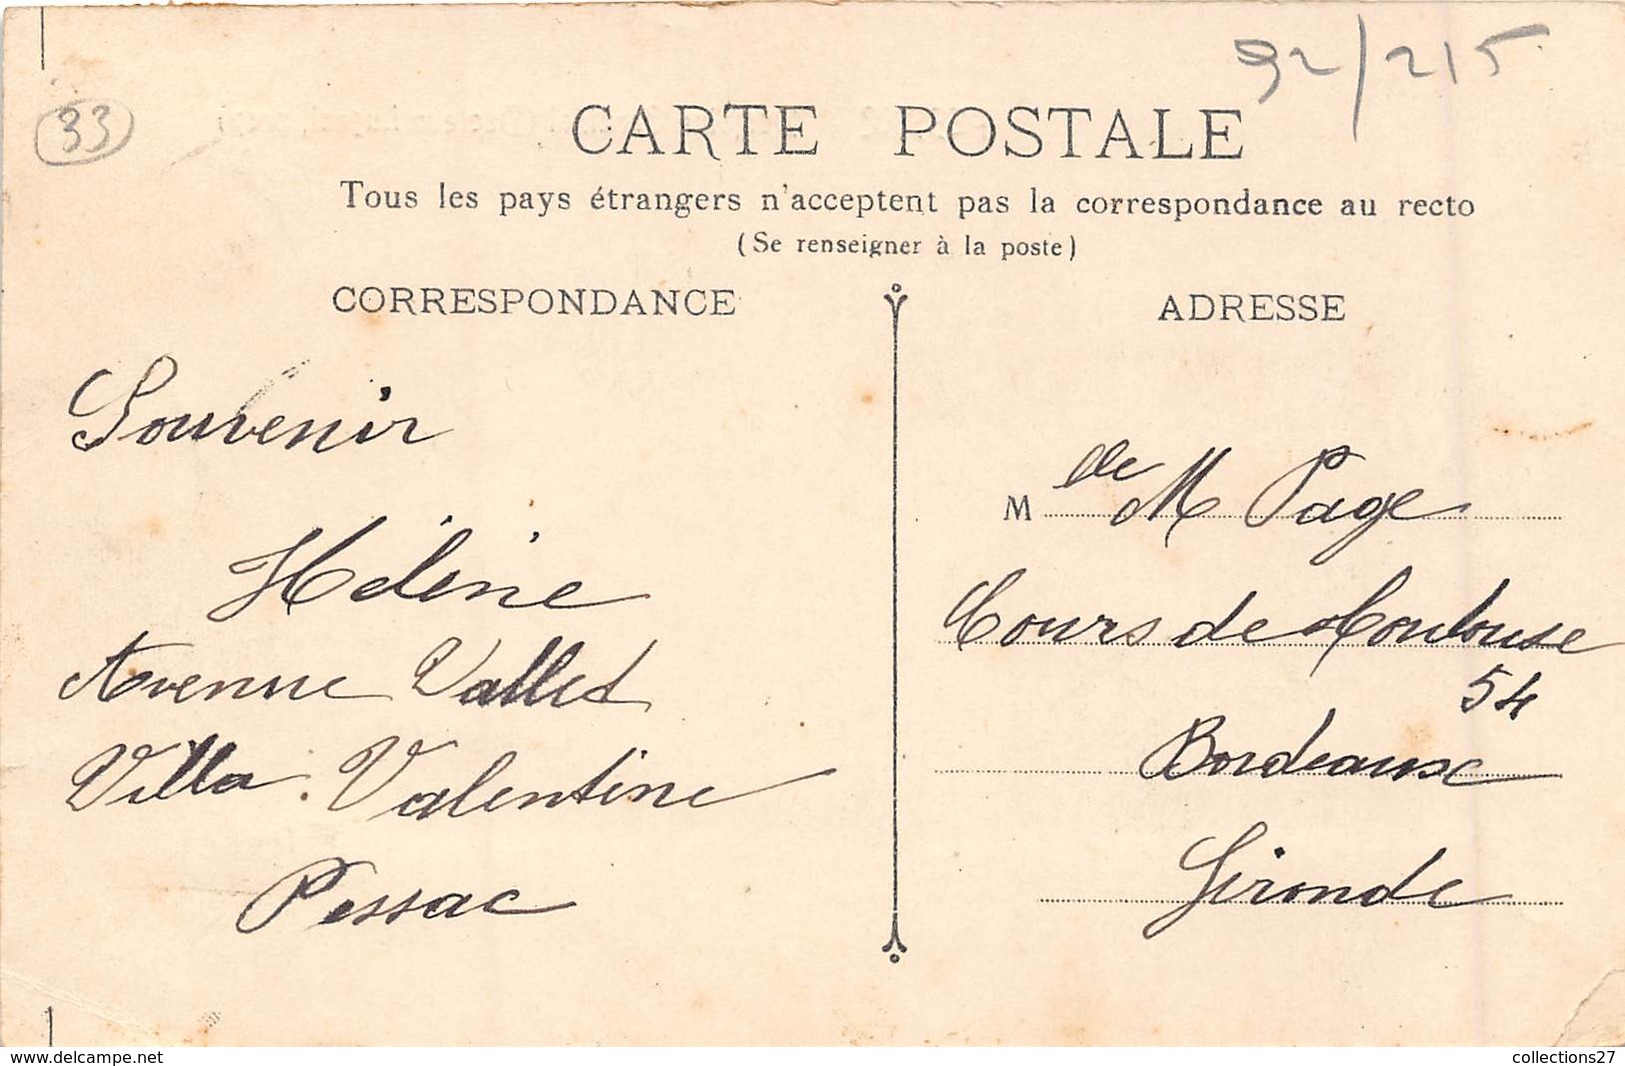 92/215
33
CARTE POSTALE
Tous les pays étrangers n'acceptent pas la correspondance au recto
(Se renseigner à la poste)
CORRESPONDANCE
Souvenir
Hélène
Avenue Vallet
Villa Valentine
Pessac
ADRESSE
M lle M Page
Cours de Toulouse
54
Bordeaux
Gironde
www.delcampe.net
collections27